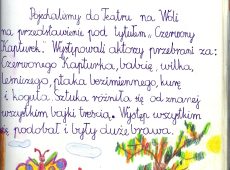 Pojechaliśmy do Teatru na Woli
na przedstawienie pod tytułem „Czerwony
Kapturek." Występowali aktorzy przebrani za:
Czerwonego Kapturka, babcię, wilka,
leśniczego, ptaka bezimiennego, kurę
i koguta. Sztuka różniła się od znanej
wszystkim, bajki treścią. Występ wszystkim
się podobał i były duże brawa.